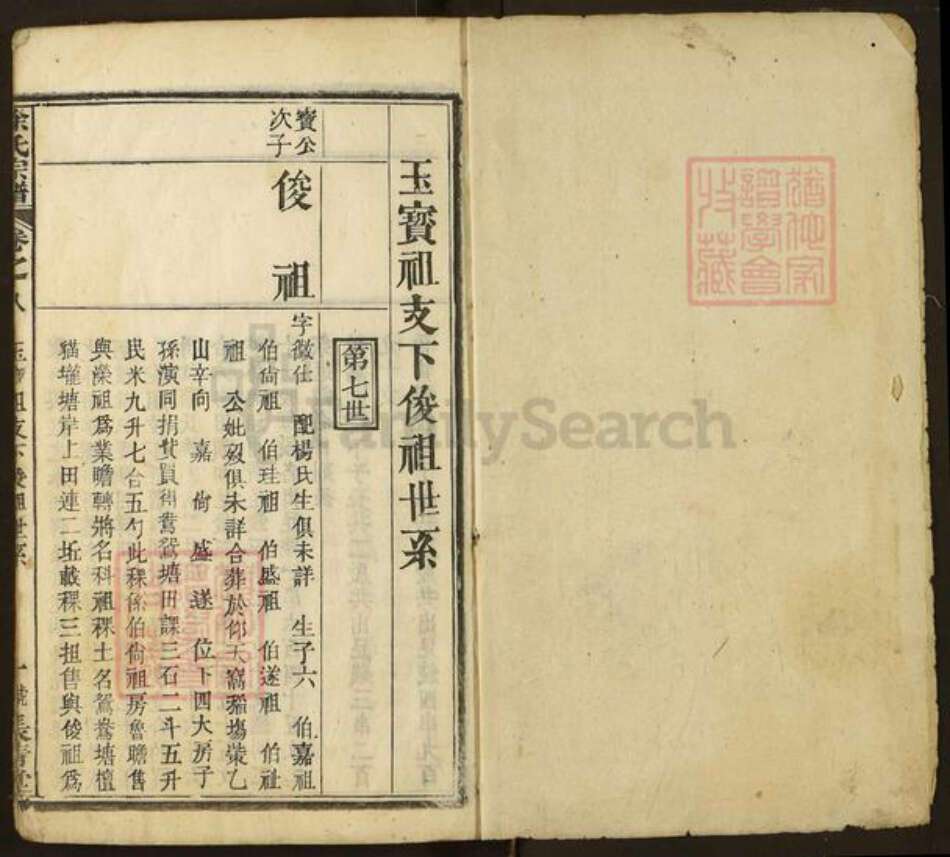 猶他家
譜學會
收藏
玉寶祖支下俊祖世系
第七世
寶公
次子
俊祖
字徽仕 配楊氏生俱未詳 生子六 伯嘉祖
伯尙祖 伯珪祖 伯盛祖 伯遂祖 伯祉
祖 公妣歿俱未詳合葬於仰天窩 塲 乙
山辛向 嘉 尙 盛 遂 位下四大房子
孫演同捐貲買得鴛鴦塘田課三石二斗五升
民米九升七合五勺此稞係伯尙祖房魯瞻售
與濚祖爲業瞻轉將名科祖稞土名鴛鴦塘檀
猫壠塘岸上田連二坵載稞三担售與俊祖爲
余氏宗譜
卷之八
玉寶祖支下俊祖世系
一
FamilySearch